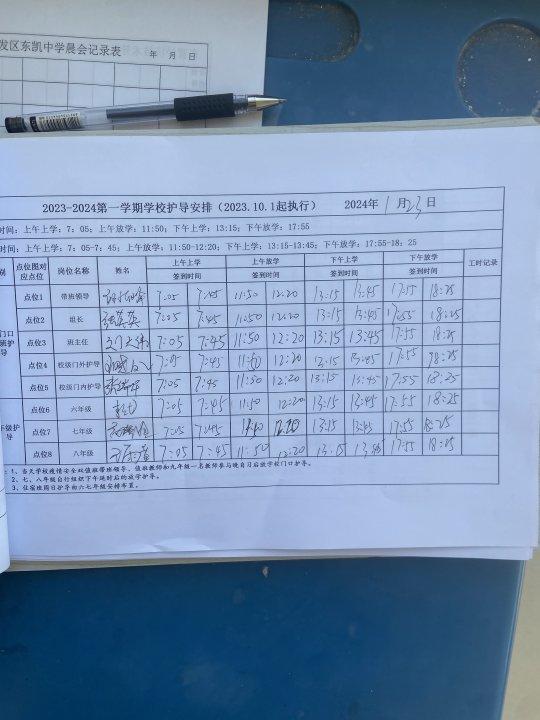 发区东凯中学晨会记录表 年 月 日
2023-2024第一学期学校护导安排（2023.10.1起执行） 2024年 1月23日
时间：上午上学：7：05；上午放学：11:50；下午上学：13:15；下午放学：17:55
时间：上午上学：7：05-7：45；上午放学：11:50-12:20；下午上学：13:15-13:45；下午放学：17:55-18：25
别 点位图对应点位 岗位名称 姓名 上午上学 上午放学 下午上学 下午放学 工时记录
签到时间 签到时间 签到时间 签到时间
点位1 带班领导 7:05 7:45 11:50 12:20 13:15 13:45 17:55 18:25
点位2 组长 7:05 7:45 11:50 12:20 13:15 13:45 17:55 18:25
门口
班护
导
点位3 班主任 7:05 7:45 11:50 12:20 13:15 13:45 17:55 18:25
点位4 校级门外护导 7:05 7:45 11:50 12:20 13:15 13:45 17:55 18:25
点位5 校级门内护导 7:05 7:45 11:50 12:20 13:15 13:45 17:55 18:25
点位6 六年级 7:05 7:45 11:50 12:20 13:15 13:45 17:55 18:25
年级护
导
点位7 七年级 7:05 7:45 12:20 13:15 13:45 17:55 18:25
点位8 八年级 7:05 7:45 11:50 12:20 13:15 13:45 17:55 18:25
：1、当天学校疫情安全双值班带班领导、值班教师和九年级一名教师参与晚自习后放学校门口护导。
2、七、八年级自行组织下午延时后的放学护导。
3、住宿班周日护导由六七年级安排布置。